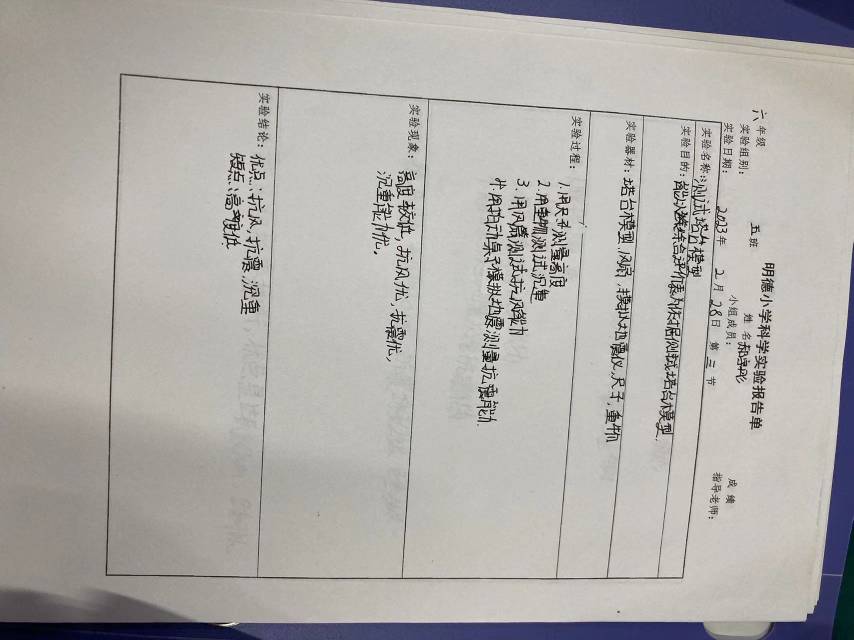 明德小学科学实验报告单
六年级 五班 姓名 成绩
实验组别: 小组成员: 指导老师:
实验日期: 2023年 2月 28日 第 三 节
实验名称:测试塔台模型
实验目的:能 评价表 依据测试塔台模型
实验器材:塔台模型,风扇,模拟地震仪,尺子,重物
实验过程:
1.用尺子测量高度
2.用重物测试沉重
3.用风扇测试抗风能力
4.用拍动桌子模拟地震测量抗震能力.
实验现象:高度较低,抗风优,抗震优,
沉重能力优。
实验结论:优点:抗风,抗震,沉重
缺点:高度低.